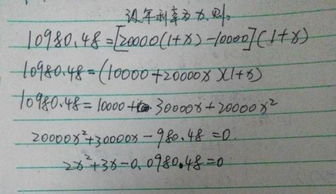 设年利率为x,则.
10980.48=[20000(1+x)-10000](1+x)
10980.48=(10000+20000x)(1+x)
10980.48=10000+30000x+20000x²
20000x²+30000x-980.48=0
2x²+3x-0.0980.48=0